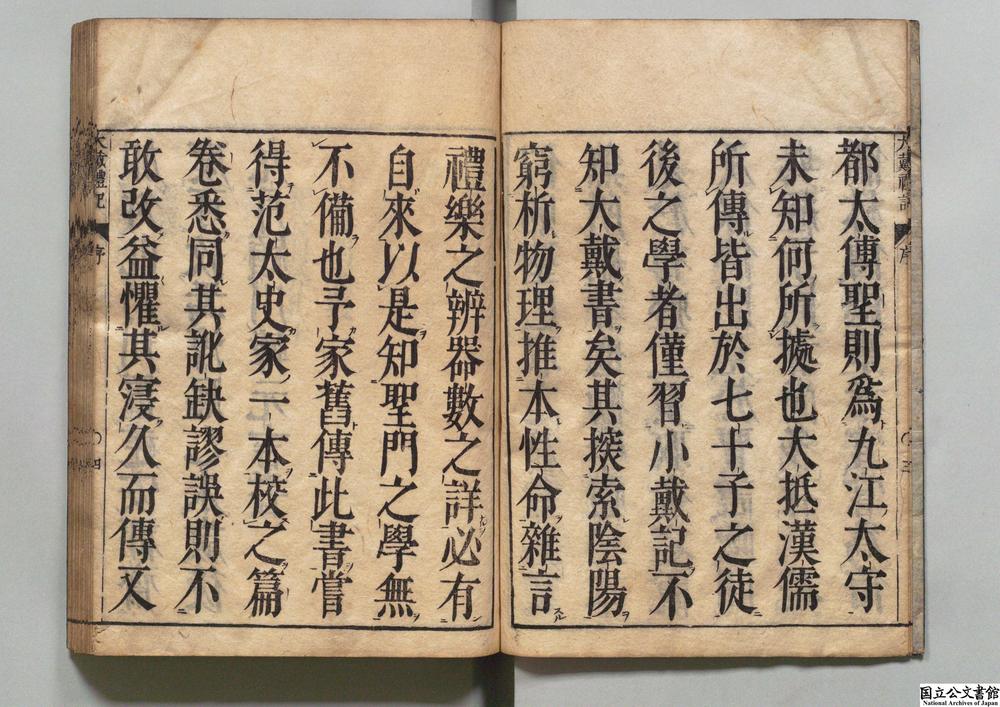 都太傳聖則爲九江太守
未知何所㨿也大抵漢儒
所傳皆出於七十子之徒
後之學者僅習小戴記不
知大戴書矣其探索陰陽
窮析物理推本性命雜言
禮樂之辨器數之詳必有
自來以是知聖門之學無
不備也予家舊傳此書嘗
得范太史家一本校之篇
卷悉同其訛缺謬誤則不
敢改益懼其寖久而傳又
大戴禮記
序
三
大戴禮記
序
四
国立公文書館
National Archives of Japan